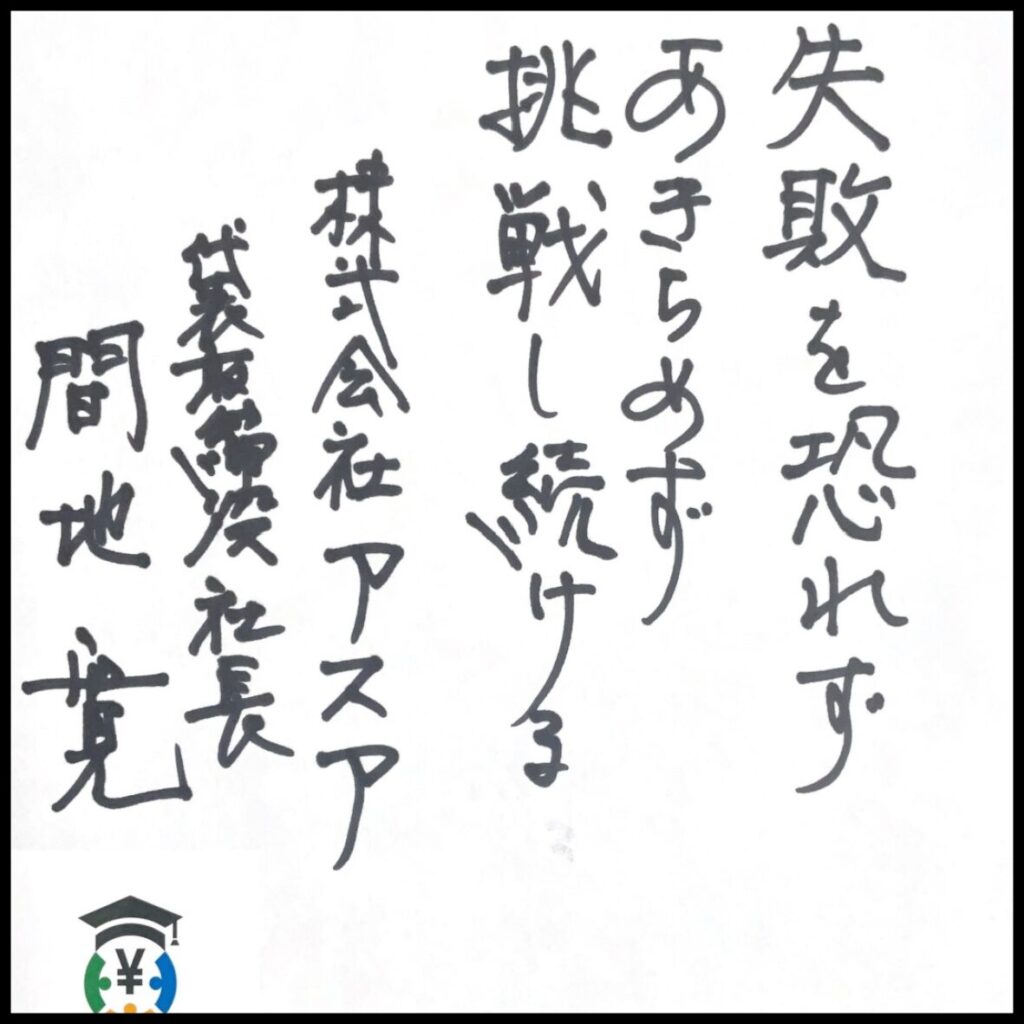 失敗を恐れず
あきらめず
挑戦し続ける
株式会社アスア
代表取締役社長
間地寛
¥